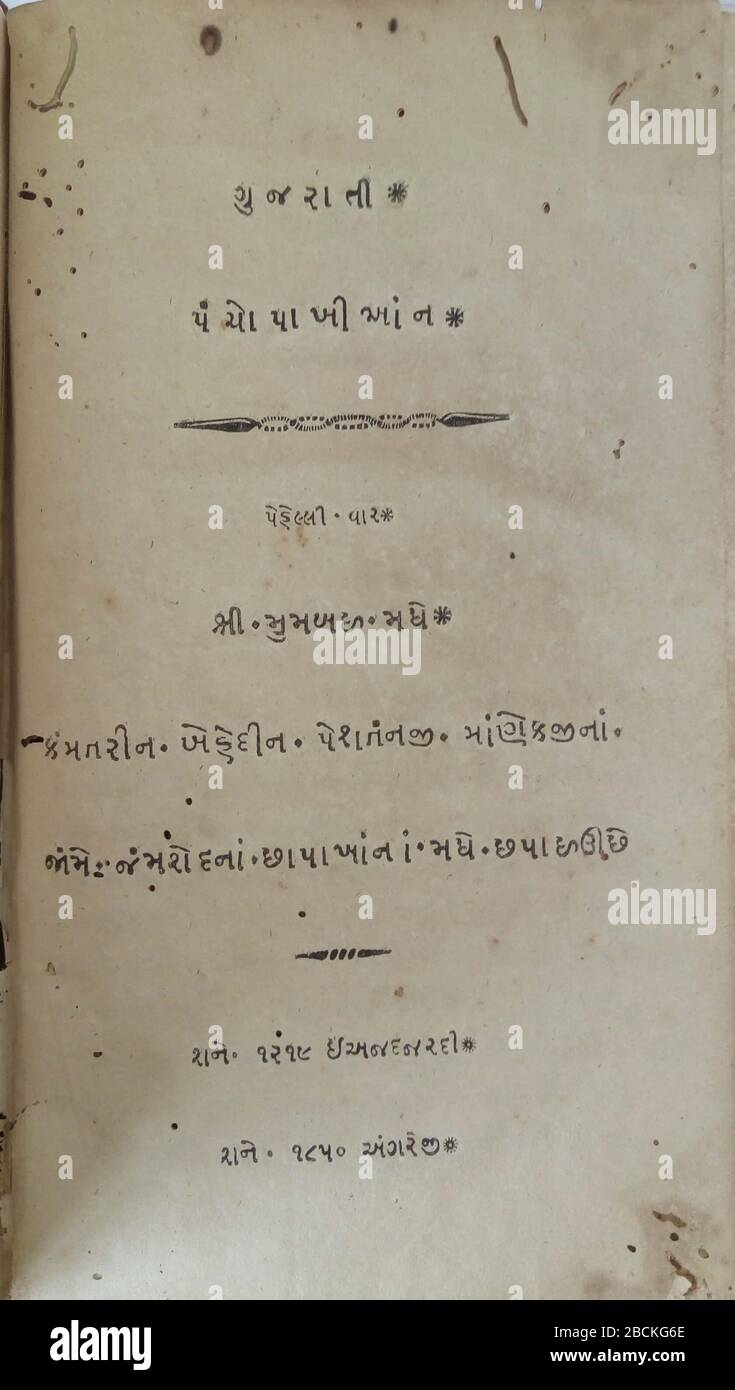 ગુજરાતી*
પંચોપાખીઆંન*
પેહેલ્લી · વાર*
શ્રી · મુમબઇ · મધે*
કંમતરીન · બેહેદીન · પેશતંનજી · માંણેકજીનાં ·
જાંમે: જંમશેદનાં · છાપાખાંનાં · મધે · છપાઇઊછે
શને · ૧૨૧૯ ઈઅજદજરદી*
શને · ૧૮૫૦ અંગરેજી*
alamy
alamy
alamy
a
alamy
Image ID: 2BCKG6E
www.alamy.com